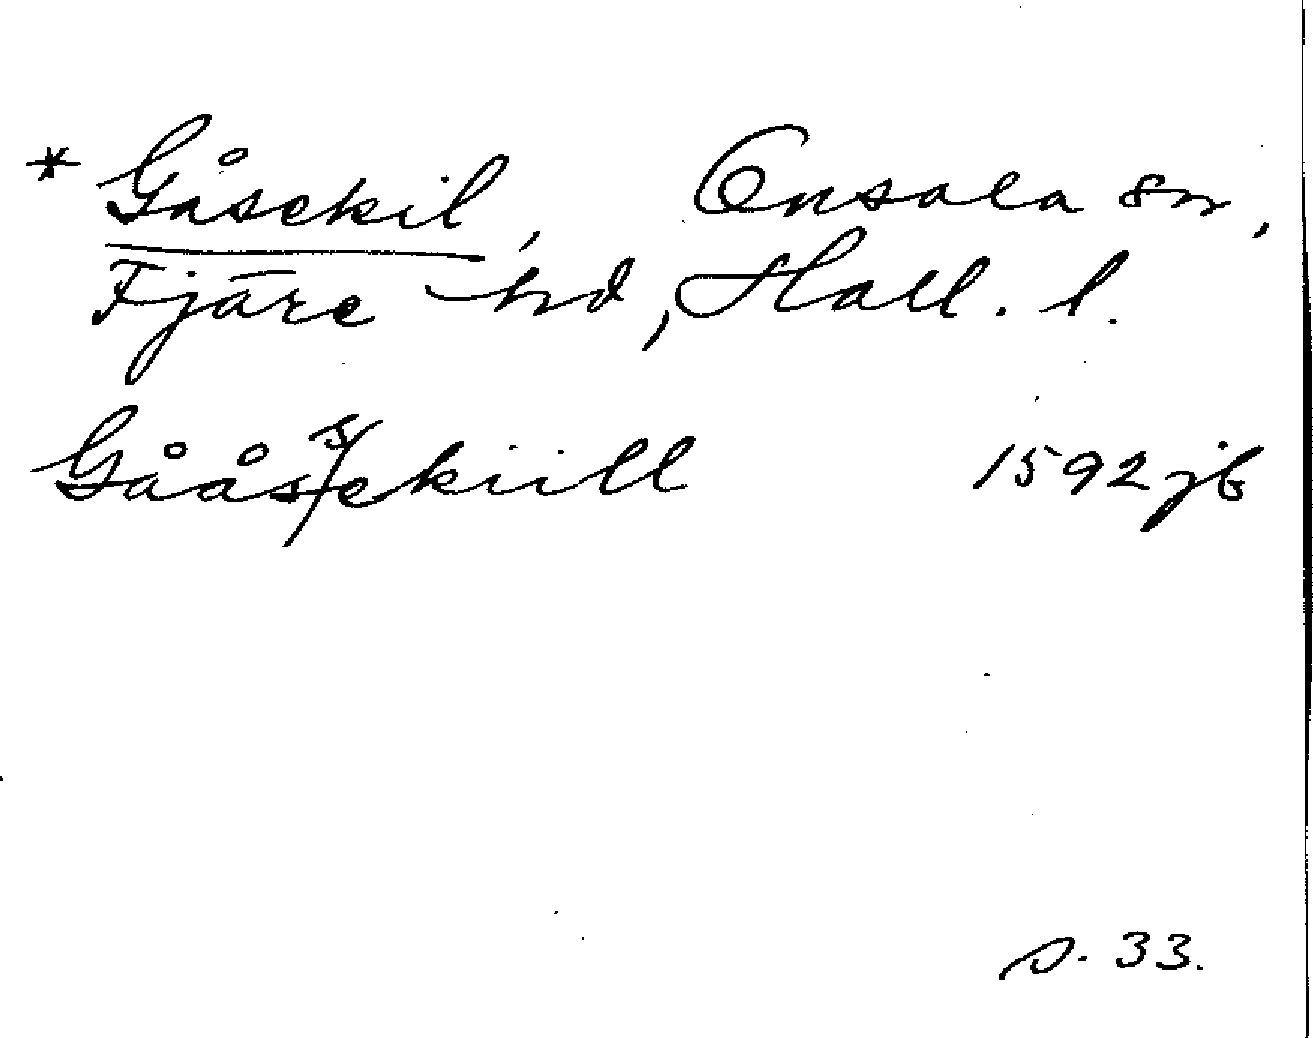 * Gåsekil, Onsala sn,
Fjäre hd, Hall. l.
Gååsekiill 1592 jb
s. 33.